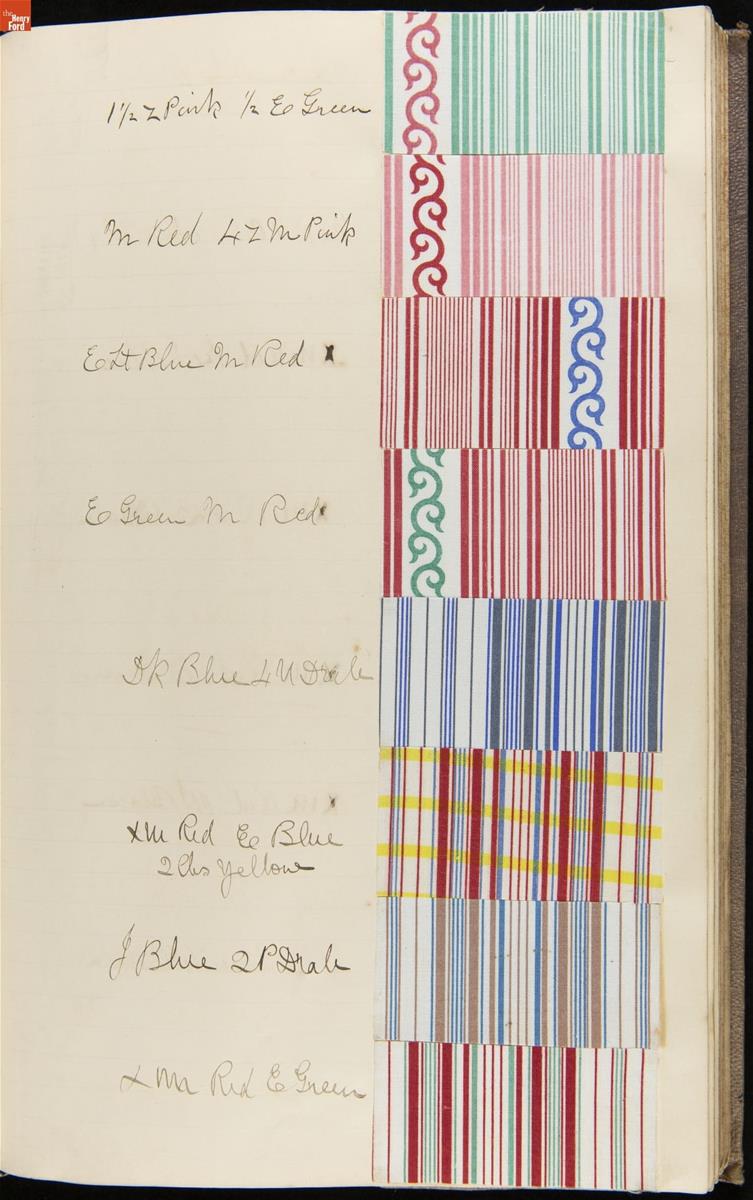 the Henry Ford
1½ Z Pink ½ E Green
M Red 4 Z M Pink
E Lt Blue M Red x
E Green M Red
Dk Blue 4 U Drab
x M Red E Blue
2 Chs Yellow
J Blue 2 P Drab
x M Red E Green